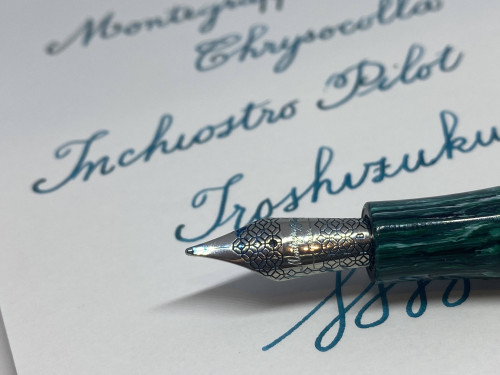 Montegrapp
Chrysocolla
Inchiostro Pilot
Iroshizuku